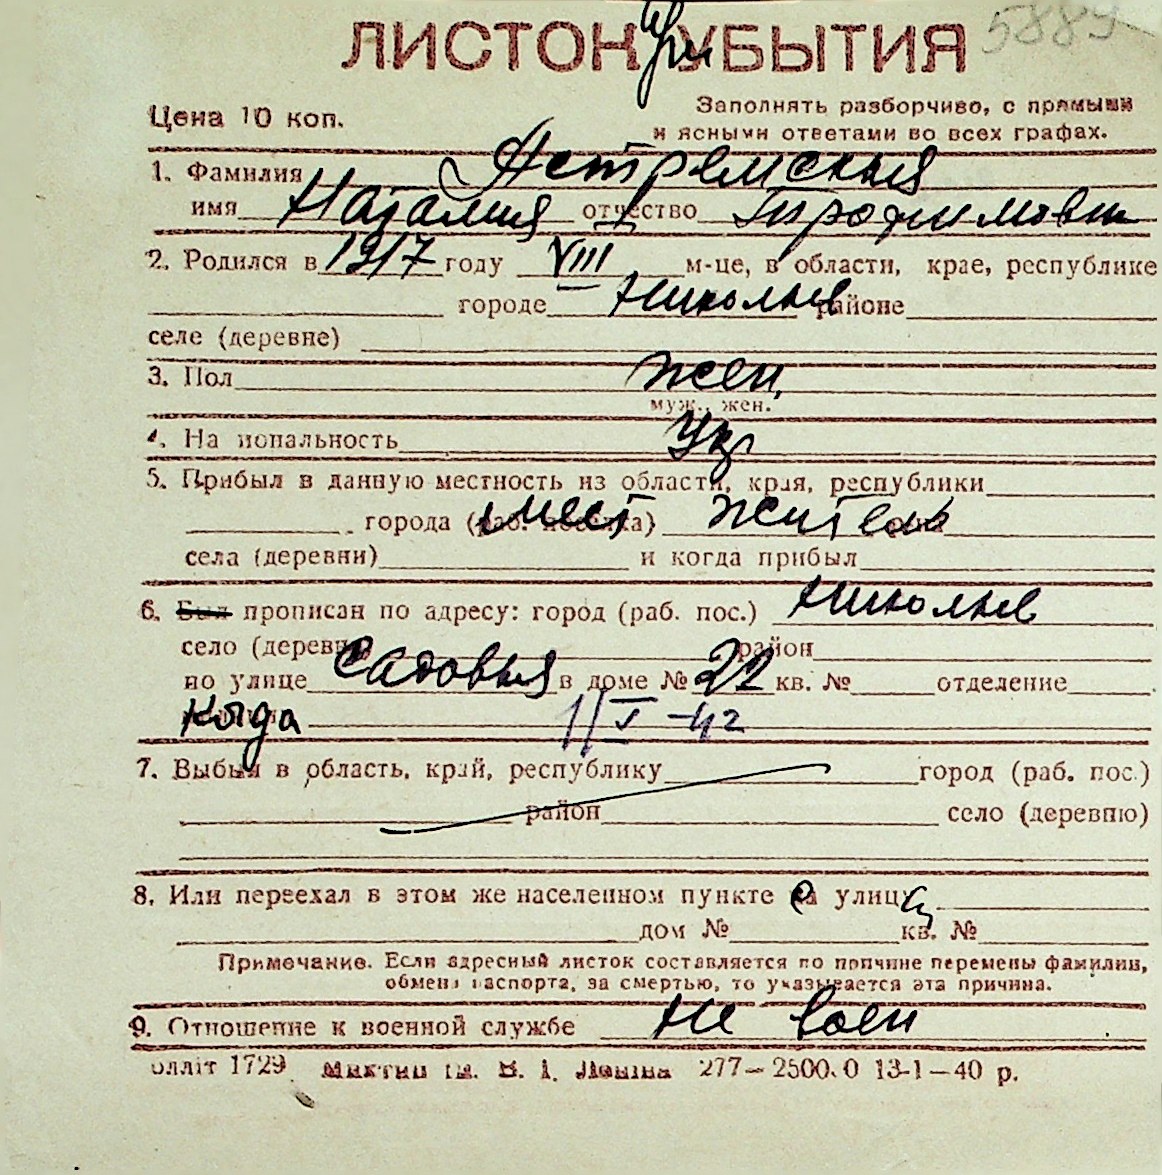 ЛИСТОК УБЫТИЯ
при
5889
Цена 10 коп.
Заполнять разборчиво, с прямыми
и ясными ответами во всех графах.
1. Фамилия Астремская
имя Наталия отчество Трофимовн
2. Родился в 1917 году VIII м-це, в области, крае, республике
городе Николаев районе
селе (деревне)
3. Пол жен.
муж., жен.
4. Национальность Укр
5. Прибыл в данную местность из области, края, республики
города (раб. поселка) мест житель
села (деревни) и когда прибыл
6. Был прописан по адресу: город (раб. пос.) Николаев
село (деревня) район
по улице Садовая в доме № 22 кв. № отделение
Когда 1/I-42
7. Выбыл в область, край, республику город (раб. пос.)
район село (деревню)
8. Или переехал в этом же населенном пункте с улицы
дом № кв. №
Примечание. Если адресный листок составляется по причине перемены фамилии,
обмена паспорта, за смертью, то указывается эта причина.
9. Отношение к военной службе не воен
Оллiт 1729 iм. В. I. Ленiна 277—2500.0 13-1—40 р.